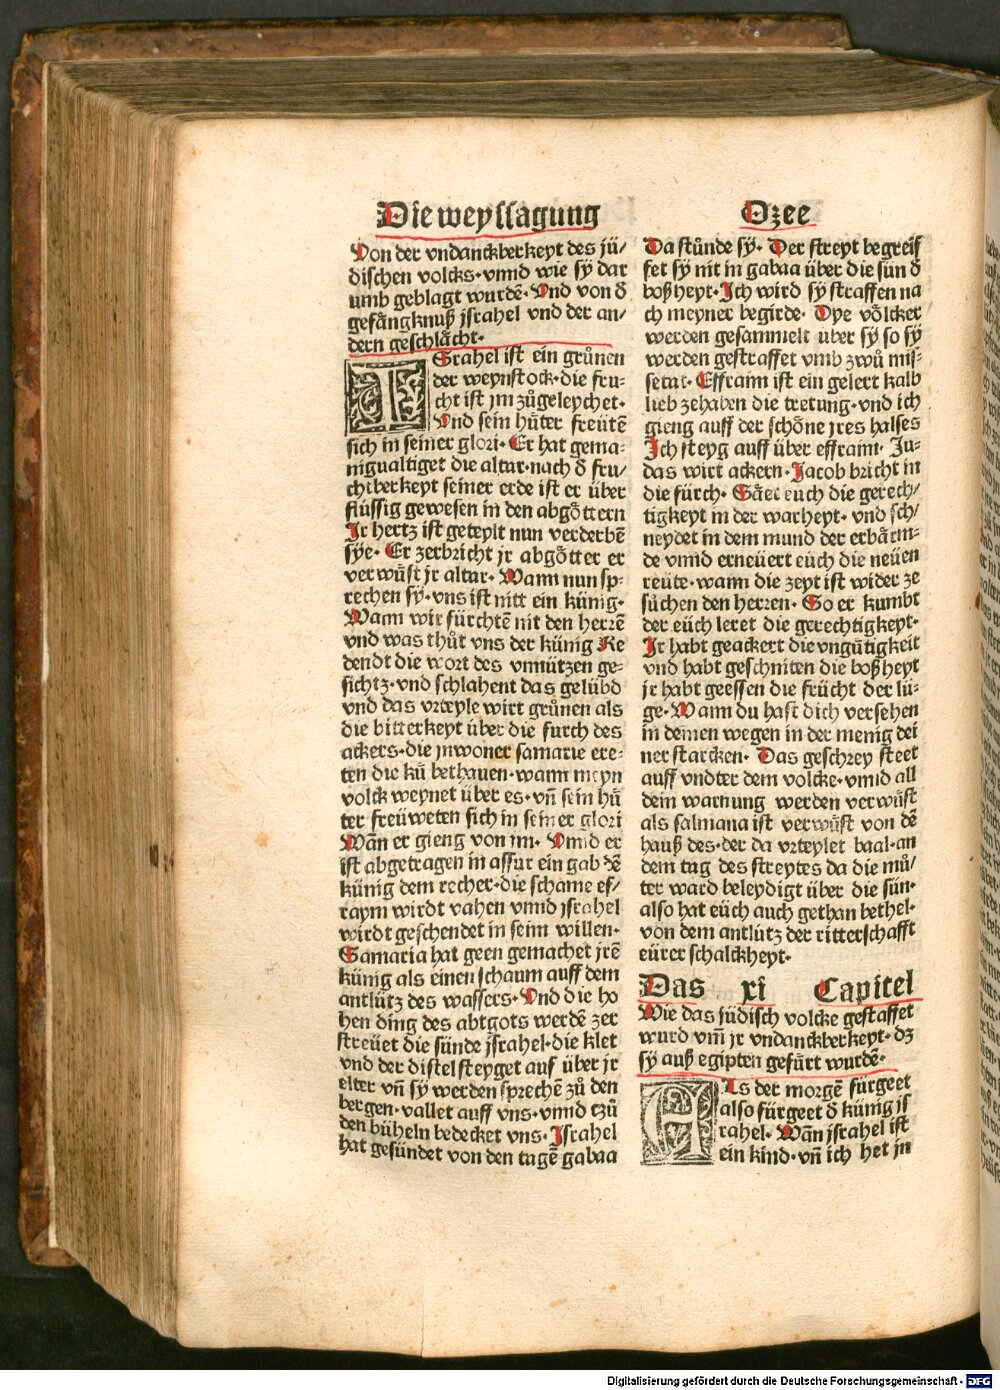 Die weyssagung
Von der vndanckberkeyt des jü/
dischen volcks·vnnd wie sÿ dar
umb geblagt wurdē·Vnd von d̄
gefångknuß jsrahel vnd der an/
dern geschlåcht·
ISrahel ist ein grůnen
der weynstock·die fru-
cht ist jm zůgeleychet·
Vnd sein hůter freütē
sich in seiner glori·Er hat gema-
nigualtiget die altar·nach d̄ fru/
chtberkeyt seiner erde ist er über
flüssig gewesen in den abgöttern
Jr hertz ist geteylt nun verderbē
sÿe·Er zerbricht jr abgötter er
verwůst jr altar·Wann nun sp-
rechen sÿ·vns ist nitt ein künig·
Wann wir fürchtē nit den herrē
vnd was thůt vns der künig Re
dendt die wort des vnnützen ge-
sichtz·vnd schlahent das gelübd
vnd das vrteyle wirt grůnen als
die bitterkeyt über die furch des
ackers·die jnwoner samarie ere-
ten die ků bethauen·wann meyn
volck weynet über es·vn̄ sein hů
ter freüweten sich in seiner glori
Wān er gieng von im·Vnnd er
ist abgetragen in assur ein gab dē
künig dem recher·die schame ef/
raym wirdt vahen vnnd jsrahel
wirdt geschendet in seim willen·
Samaria hat geen gemachet jrē
künig als einen schaum auff dem
antlütz des wassers·Vnd die ho
hen ding des abtgots werdē zer
streüet die sünde jsrahel·die klet
vnd der distel steyget auf über jr
elter vn̄ sÿ werden sprechē zů den
bergen·vallet auff vns·vnnd tzů
den büheln bedecket vns·Israhel
hat gesündet von den tagē gabaa
Ozee
Da stůnde sÿ·Der streyt begreif
fet sÿ nit in gabaa über die sün d̄
boßheyt·Ich wird sÿ straffen na
ch meyner begirde·Dye völcker
werden gesammelt über sÿ so sÿ
werden gestraffet vmb zwů mis-
setat·Effraim ist ein gelert kalb
lieb zehaben die tretung·vnd ich
gieng auff der schöne jres halses
Ich steyg auff über effraim·Ju-
das wirt ackern·Jacob bricht in
die fürch·Sået eüch die gerech/
tigkeyt in der warheyt·vnd sch/
neydet in dem mund der erbårm-
de vnnd erneüert eüch die neüen
reüte·wann die zeyt ist wider ze
sůchen den herren·So er kumbt
der eüch leret die gerechtigkeyt·
Ir habt geackert die vngütigkeit
vnd habt geschniten die boßheyt
jr habt geessen die frücht der lü-
ge·Wann du hast dich versehen
in deinen wegen in der menig dei
ner starcken·Das geschrey steet
auff vndter dem volcke·vnnd all
dein warnung werden verwůst
als salmana ist verwůst von dē
hauß des·der da vrteylet baal·an
dem tag des streytes da die mů/
ter ward beleydigt über die sün·
also hat eüch auch gethan bethel·
von dem antlütz der ritterschafft
eürer schalckheyt·
Das xi Capitel
Wie das jüdisch volcke gestaffet
wurd vm̄ jr vndanckberkeyt·dz
sÿ auß egipten gefürt wurdē·
ALs der morgē fürgeet
also fürgeet d̄ künig js
rahel·Wān jsrahel ist
ein kind·vn̄ ich het jn
Digitalisierung gefördert durch die Deutsche Forschungsgemeinschaft - DFG